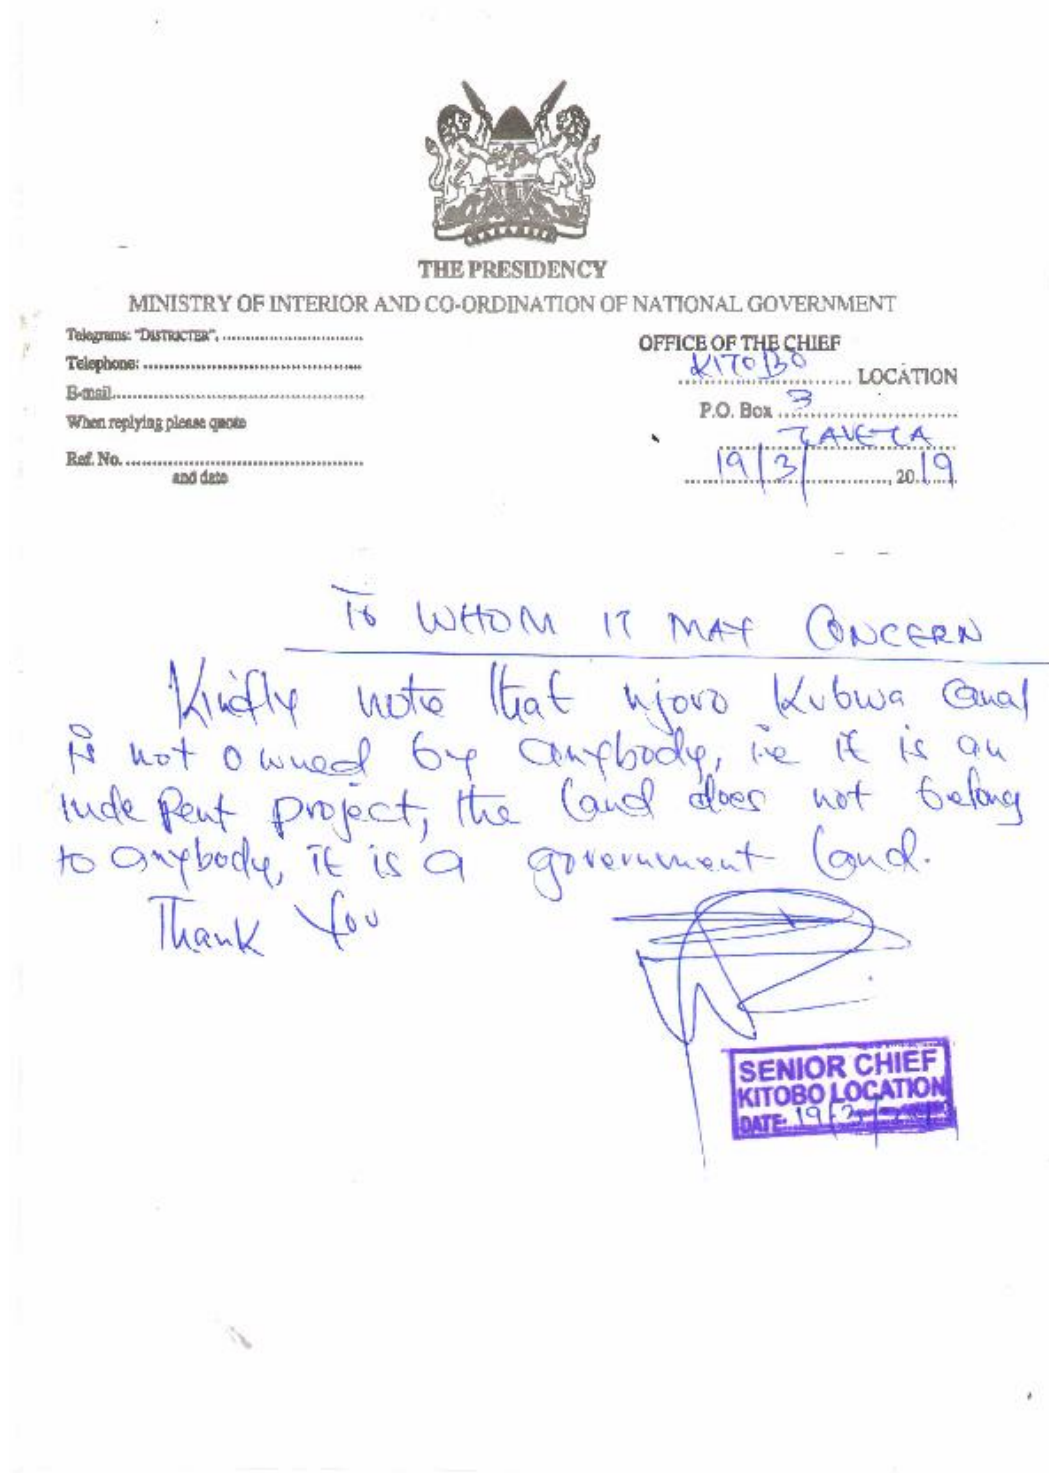 THE PRESIDENCY
MINISTRY OF INTERIOR AND CO-ORDINATION OF NATIONAL GOVERNMENT
Telegrams: "DISTRICTER", ..............................
Telephone: ..............................
E-mail..............................
When replying please quote
Ref. No. ..............................
and date
OFFICE OF THE CHIEF
KITOBO LOCATION
P.O. Box 3
TAVETA
19/3/, 2019
TO WHOM IT MAY CONCERN
Kindly note that njoro Kubwa Canal
is not owned by anybody, i.e it is an
inde pent project, the land does not belong
to anybody, it is a government land.
Thank You
SENIOR CHIEF
KITOBO LOCATION
DATE: 19/3/